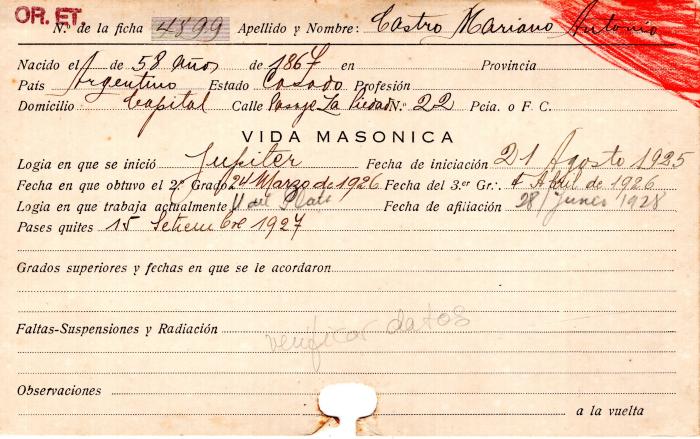 OR. ET.
N.º de la ficha 4899 Apellido y Nombre: Castro Mariano Antonio
Nacido el de 58 años de 1867 en Provincia
País Argentino Estado Casado Profesión
Domicilio Capital Calle Pasaje La Piedad N.º 22 Pcia. o F. C.
VIDA MASONICA
Logia en que se inició Jupiter Fecha de iniciación 21 Agosto 1925
Fecha en que obtuvo el 2.º Grado 24 Marzo de 1926 Fecha del 3.er Gr.: 4 Abril de 1926
Logia en que trabaja actualmente del Plata Fecha de afiliación 28/ 1928
Pases quites 15 Setiembre 1927
Grados superiores y fechas en que se le acordaron
Faltas-Suspensiones y Radiación
verificar datos
Observaciones
a la vuelta